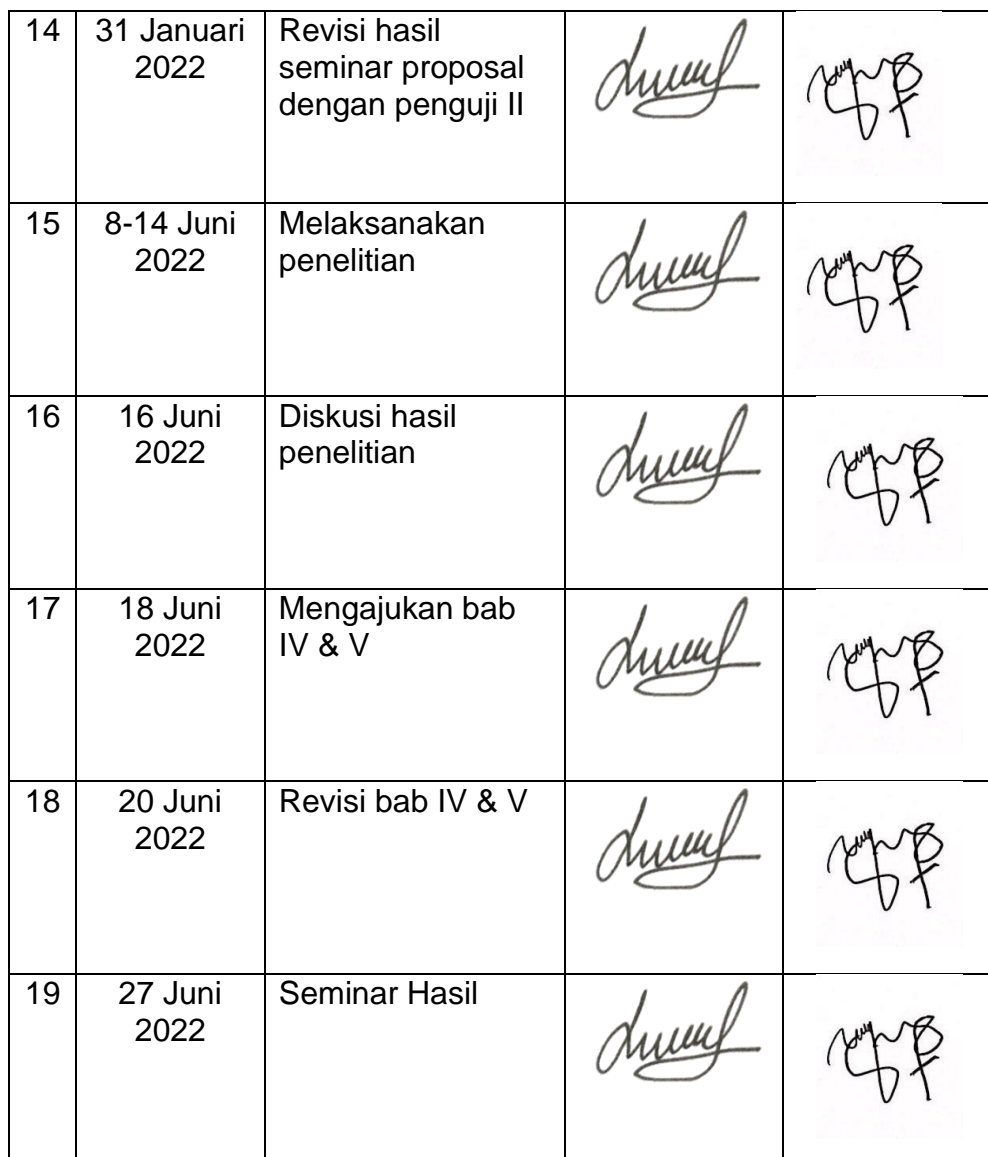 14
31 Januari
2022
Revisi hasil
seminar proposal
dengan penguji II
15
8-14 Juni
2022
Melaksanakan
penelitian
16
16 Juni
2022
Diskusi hasil
penelitian
17
18 Juni
2022
Mengajukan bab
IV & V
18
20 Juni
2022
Revisi bab IV & V
19
27 Juni
2022
Seminar Hasil